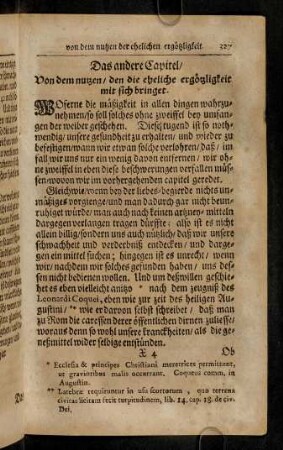 von dem nutzen der ehelichen ergötzligkeit 327
Das andere Capitel/
Von dem nutzen/ den die eheliche ergötzligkeit
mit sich bringet.
WOferne die mäßigkeit in allen dingen wahrzu-
nehmen/ so soll solches ohne zweiffel bey umfan-
gen der weiber geschehen. Diese tugend ist so noth-
wendig/ unsere gesundheit zu erhalten/ und wieder zu
befestigen/ wann wir etwan solche verlohren/ daß/ im
fall wir uns nur ein wenig davon entfernen/ wir oh-
ne zweiffel in eben diese beschwerungen verfallen müs-
sen/ wovon wir im vorhergehenden capitel geredet.
Gleichwie/ wenn bey der liebes-begierde nichts un-
mäßiges vorgienge/ und man dadurch gar nicht beun-
ruhiget würde/ man auch nach keinen artzney-mitteln
dargegen verlangen tragen dürffte: also ist es nicht
allein billig/ sondern uns auch nützlich/ daß wir unsere
schwachheit und verderbniß entdecken/ und darge-
gen ein mittel suchen; hingegen ist es unrecht/ wenn
wir/ nachdem wir solches gefunden haben/ uns des-
sen nicht bedienen wollen. Und um deßwillen geschie-
het es eben vielleicht anitzo * nach dem zeugniß des
Leonardi Coquei, eben wie zur zeit des heiligen Au-
gustini/ ** wie er davon selbst schreibet/ daß man
zu Rom die caressen derer öffentlichen dirnen zuliesse/
woraus denn so wohl unsere kranckheiten/ als die ge-
neßmittel wider selbige entstünden.
X 4 Ob
* Ecclesia & principes Christiani meretrices permittunt,
ut gravioribus malis occurrant. Coqueus comm. in
Augustin.
** Latebræ requirantur in usu scortorum, quo terrena
civitas licitam fecit turpitudinem, lib. 14. cap. 18. de civ.
Dei.